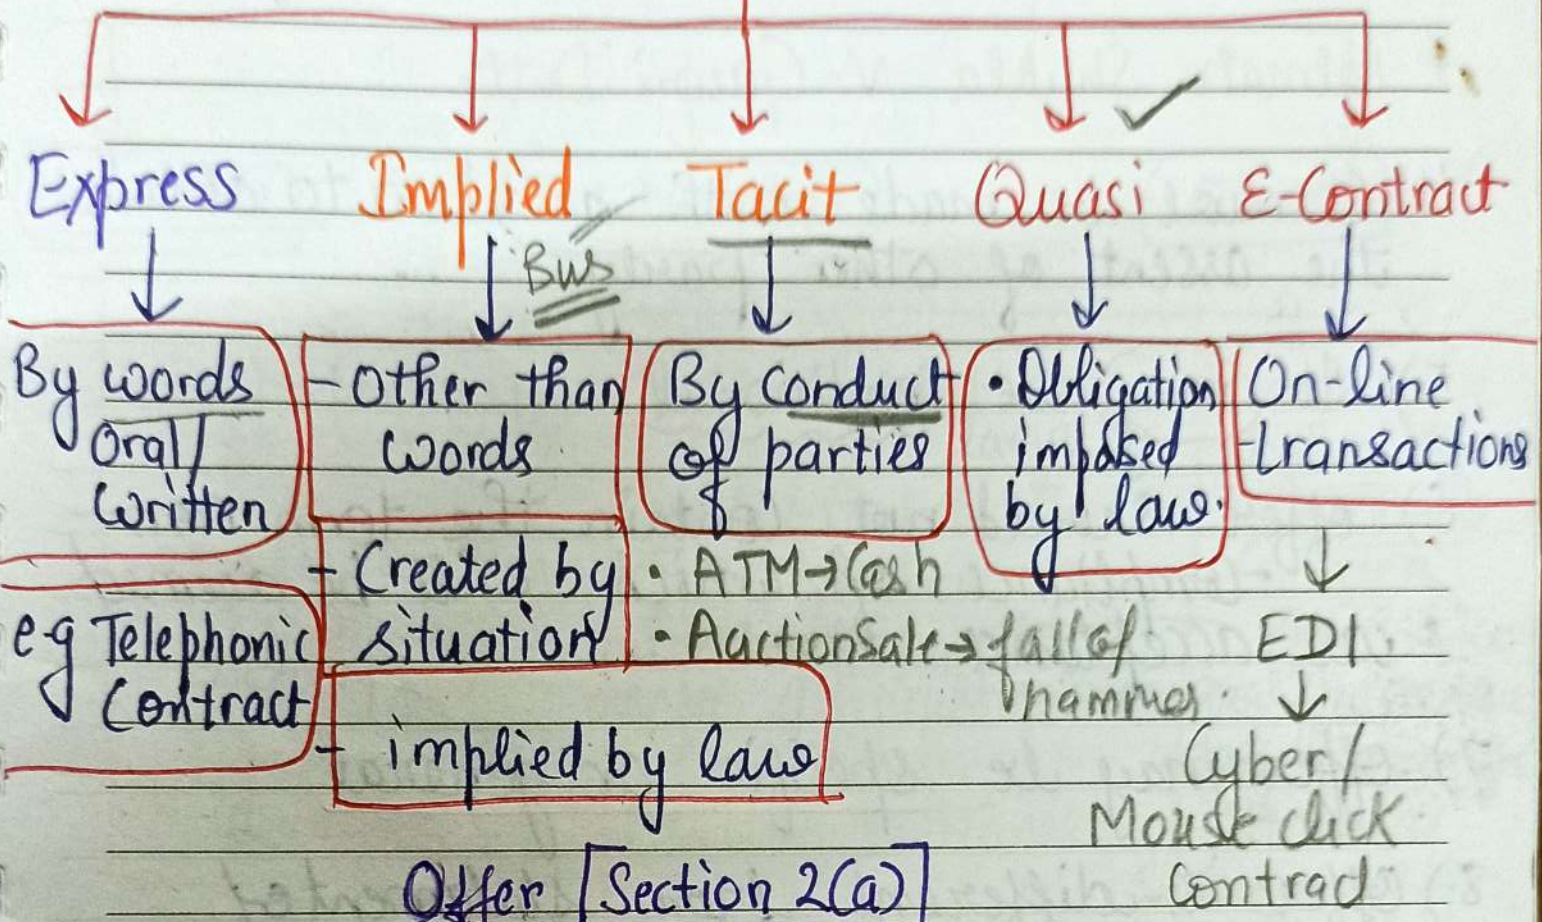 Express
Implied
Tacit
Quasi
E-Contract
Bus
By words
Oral/
Written
e.g Telephonic
Contract
- Other than
words
- Created by
situation
- implied by law
By conduct
of parties
• ATM → Cash
• Auction Sale → fall of
hammer.
• Obligation
imposed
by law.
On-line
transactions
↓
EDI
↓
Cyber/
Mouse click
Contract
Offer [Section 2(a)]